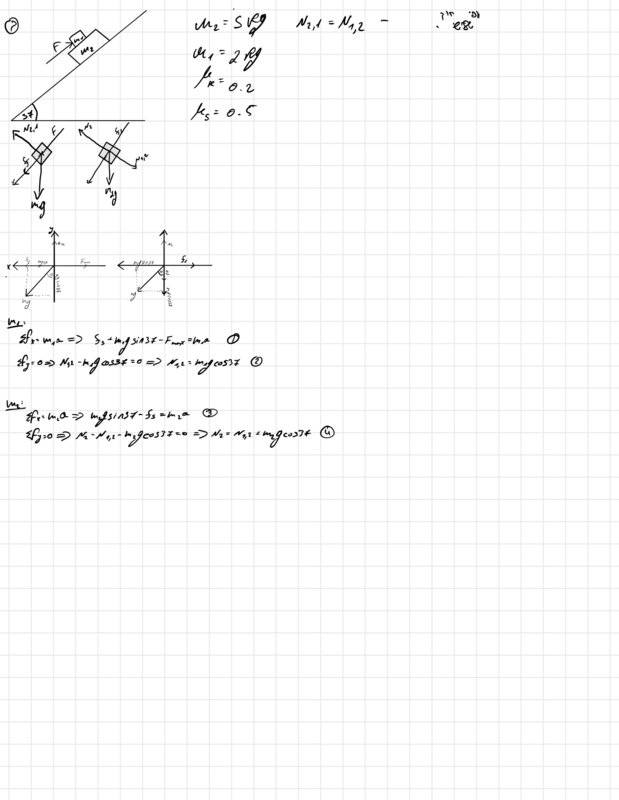 F m1 m2
m2 = 5 kg N2,1 = N1,2 -
m1 = 2 kg
μk = 0.2
μs = 0.5
37
N2,1 F N2 fs
mg
y
x
mg
m1:
Σfx=m1a => fs+m1g sin37-Fmax=m1a ①
Σfy=0 => N1,2-m1g cos37=0 => N1,2=m1g cos37 ②
m2:
Σfx=m2a => m2g sin37-fs=m2a ③
Σfy=0 => N2-N1,2-m2g cos37=0 => N2=N1,2=m2g cos37 ④